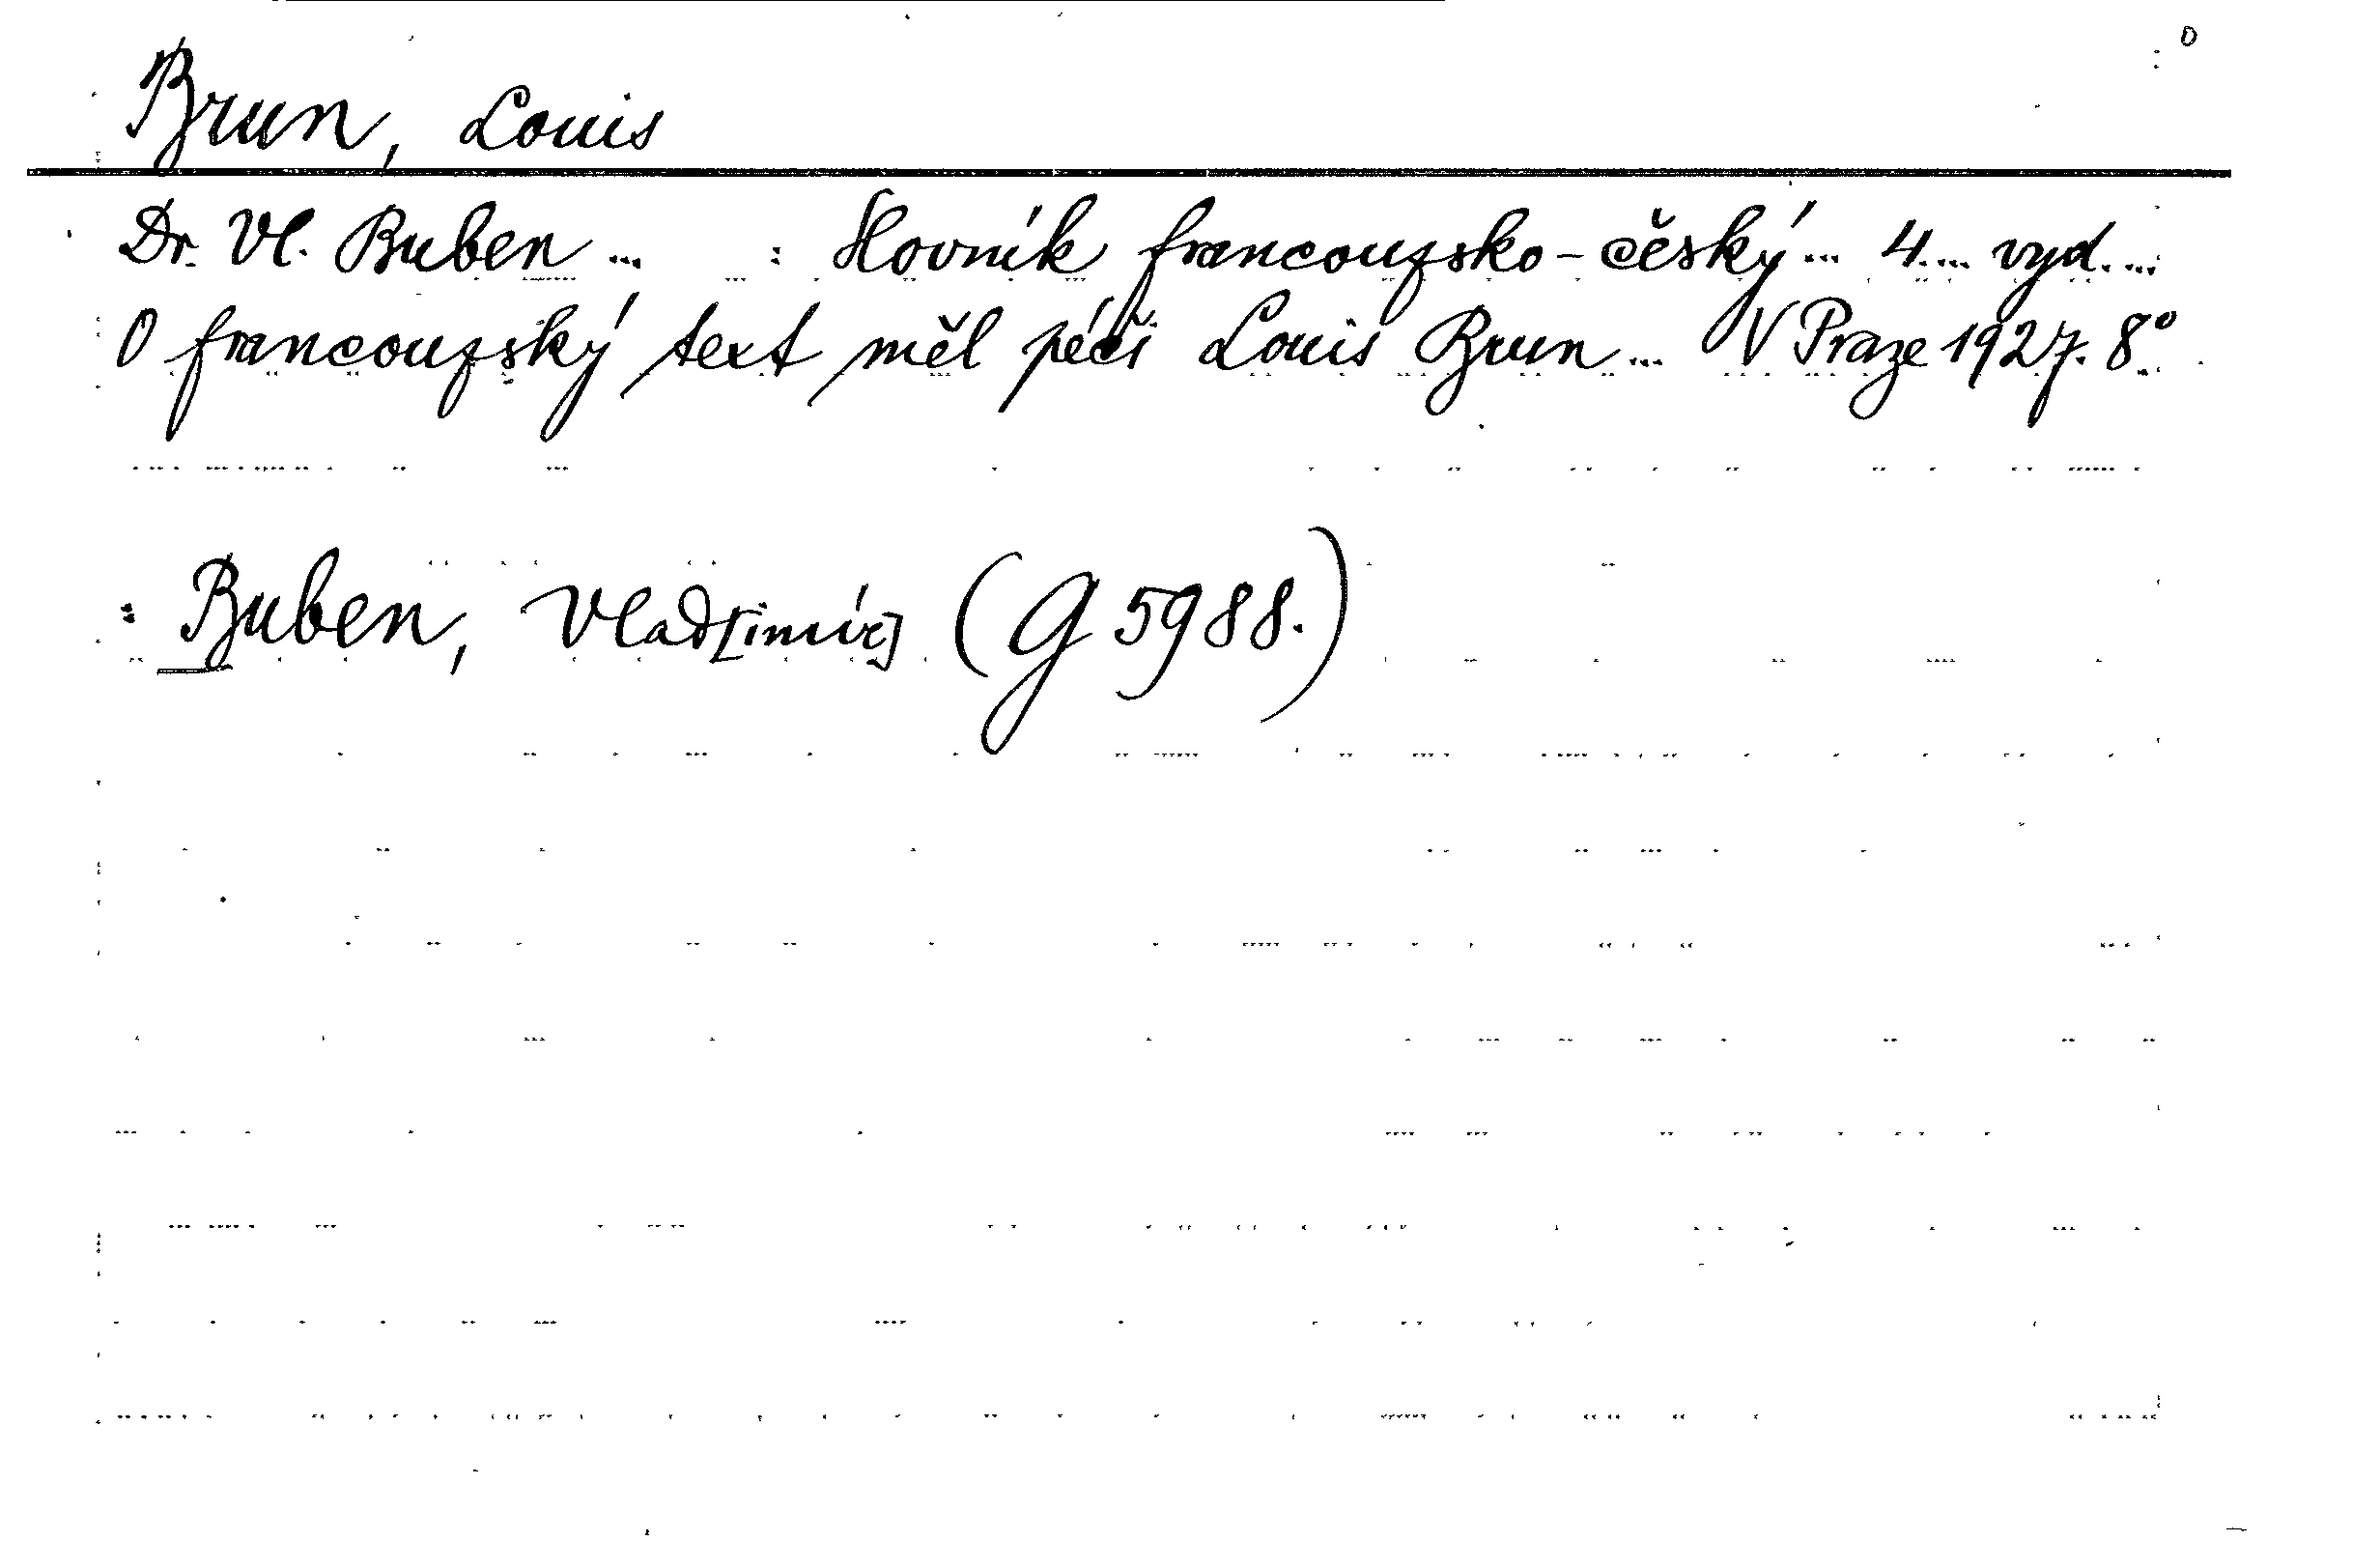 Brun, Louis
Dr. Vl. Buben ... : Slovník francouzsko-český ... 4. ... vyd. ...
O francouzský text měl péči Louis Brun ... V Praze 1927. 8°
: Buben, Vlad[imír] (G 5988.)